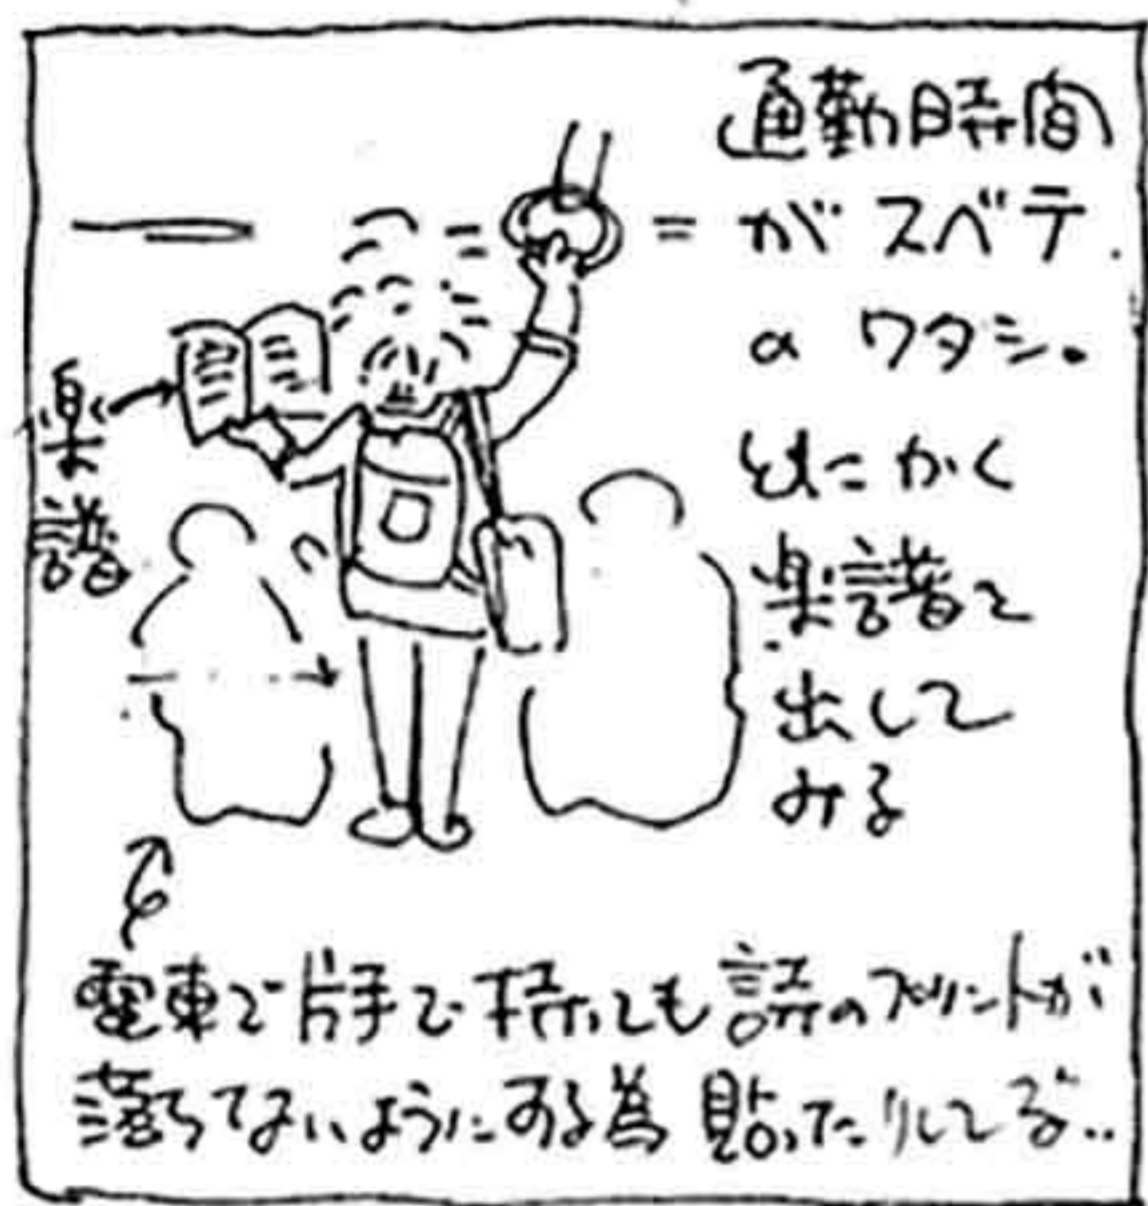 通勤時間
がスベテ
のワタシ。
とにかく
楽譜を
出して
みる
楽譜
電車で片手で持っても詩のプリントが
落ちてないようにする為貼ったりしてる‥